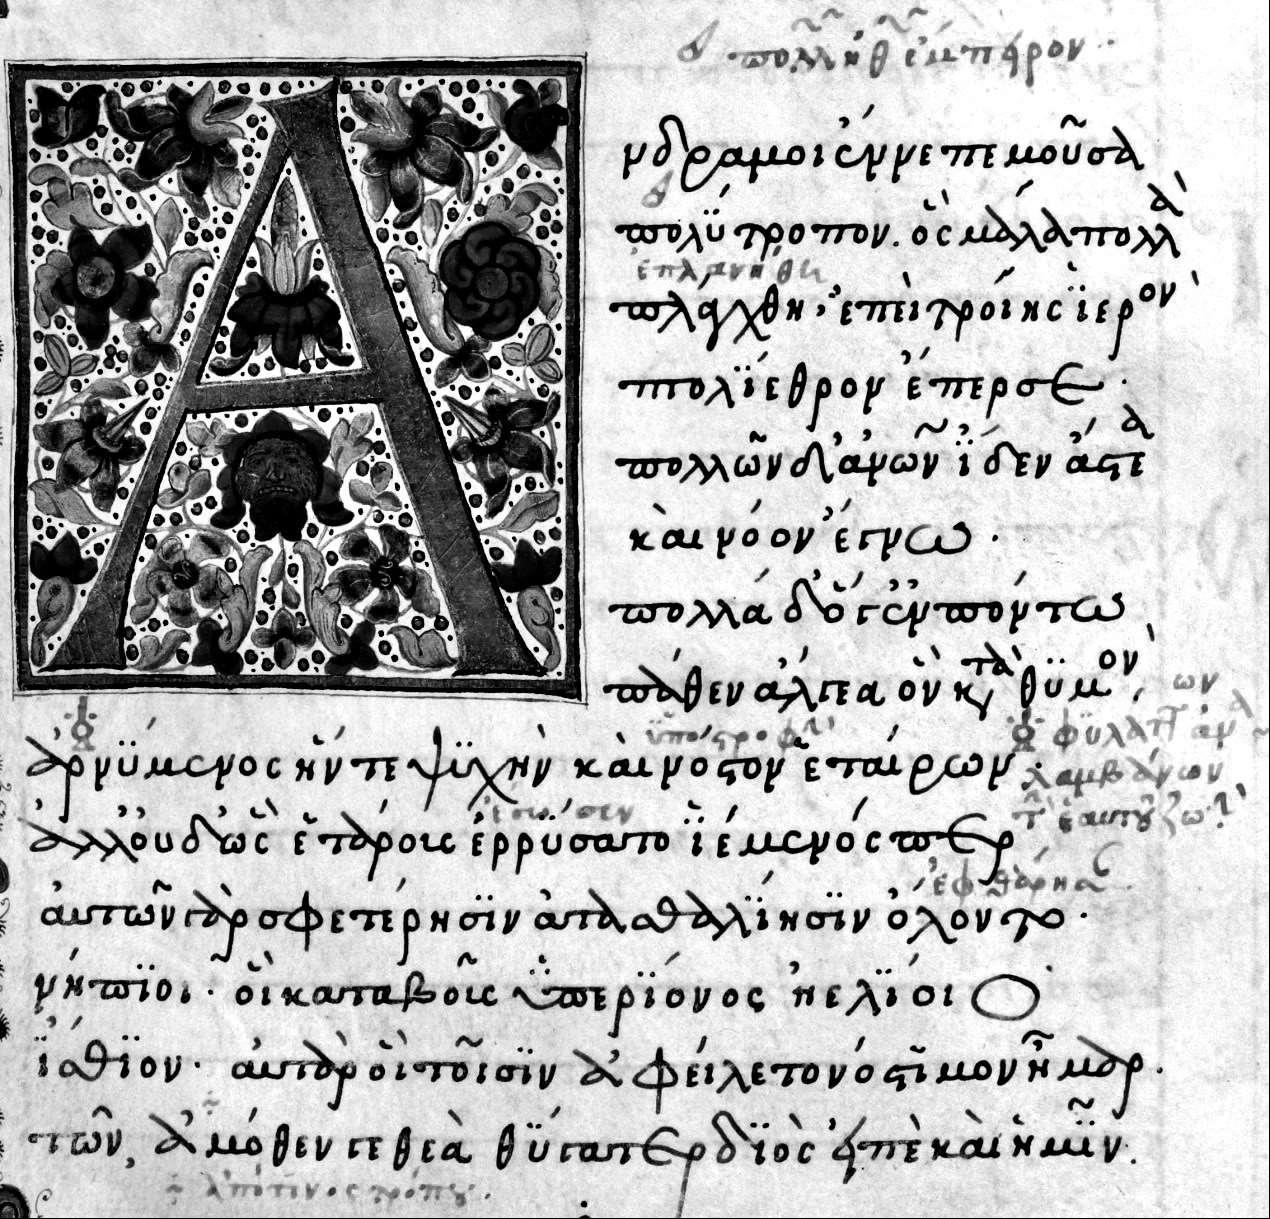 Ἄ
νδρα μοι ἔννεπε μοῦσα
πολύτροπον. ὃς μάλα πολλὰ
ἐπλανήθη
πλάγχθη, ἐπεὶ τροίης ἱερὸν
πτολίεθρον ἔπερσε.
πολλῶν δ' ἀνθρώπων ἴδεν ἄστεα
καὶ νόον ἔγνω.
πολλὰ δ' ὅγ' ἐν πόντω
πάθεν ἄλγεα ὃν κατὰ θυμόν,
ὑποστροφὴν
ἀρνύμενος ἥν τε ψυχὴν καὶ νόστον ἑταίρων.
λαμβάνων
ἀλλ' οὐδ' ὣς ἑτάροις ἐρρύσατο ἱέμενός περ
ἐφθάρησαν
αὐτῶν γὰρ σφετέρησιν ἀτασθαλίησιν ὄλοντο.
νήπιοι. οἳ κατὰ βοῦς ὑπερίονος ἠελίοιο
ἤσθιον. αὐτὰρ ὃ τοῖσιν ἀφείλετο νόστιμον ἦμαρ.
τῶν, ἀμόθεν γε θεὰ θύγατερ διὸς εἰπὲ καὶ ἡμῖν.
ἀπό τινος τρόπου.